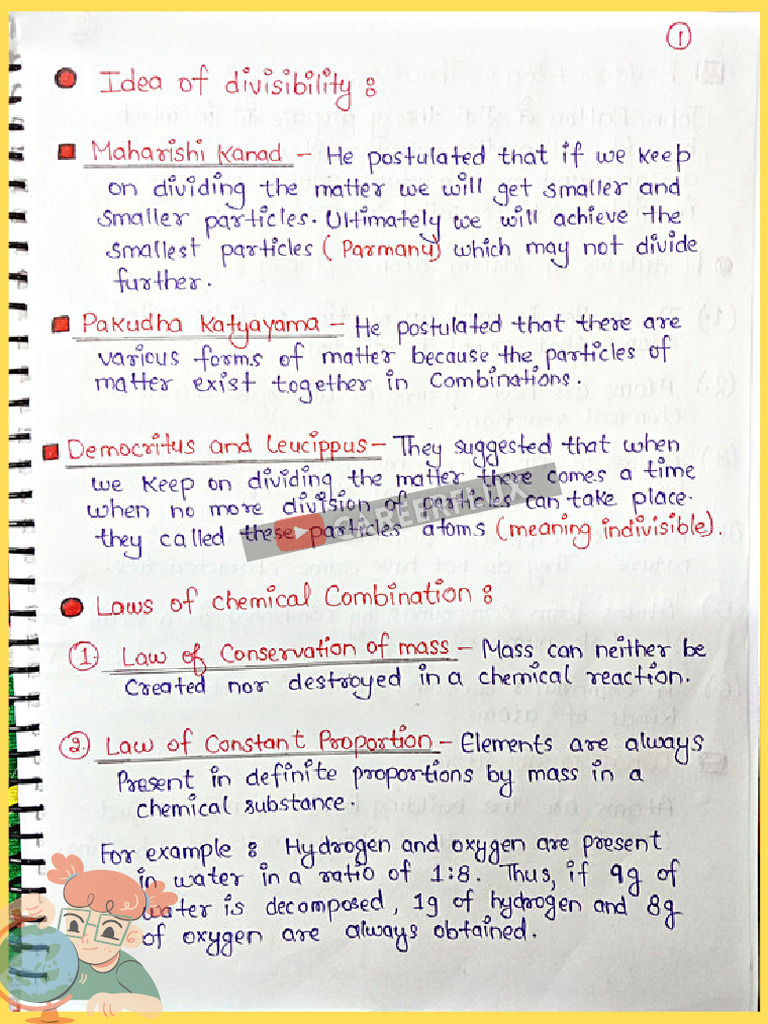 1
Idea of divisibility :
Maharishi Kanad – He postulated that if we keep
on dividing the matter we will get smaller and
smaller particles. Ultimately we will achieve the
smallest particles (Parmanu) which may not divide
further.
Pakudha Katyayama – He postulated that there are
various forms of matter because the particles of
matter exist together in combinations.
Democritus and Leucippus – They suggested that when
we keep on dividing the matter there comes a time
when no more division of particles can take place.
they called these particles atoms (meaning indivisible).
Laws of chemical Combination :
1. Law of Conservation of mass – Mass can neither be
created nor destroyed in a chemical reaction.
2. Law of Constant Proportion – Elements are always
Present in definite proportions by mass in a
chemical substance.
For example : Hydrogen and oxygen are present
in water in a ratio of 1:8. Thus, if 9g of
water is decomposed, 1g of hydrogen and 8g
of oxygen are always obtained.